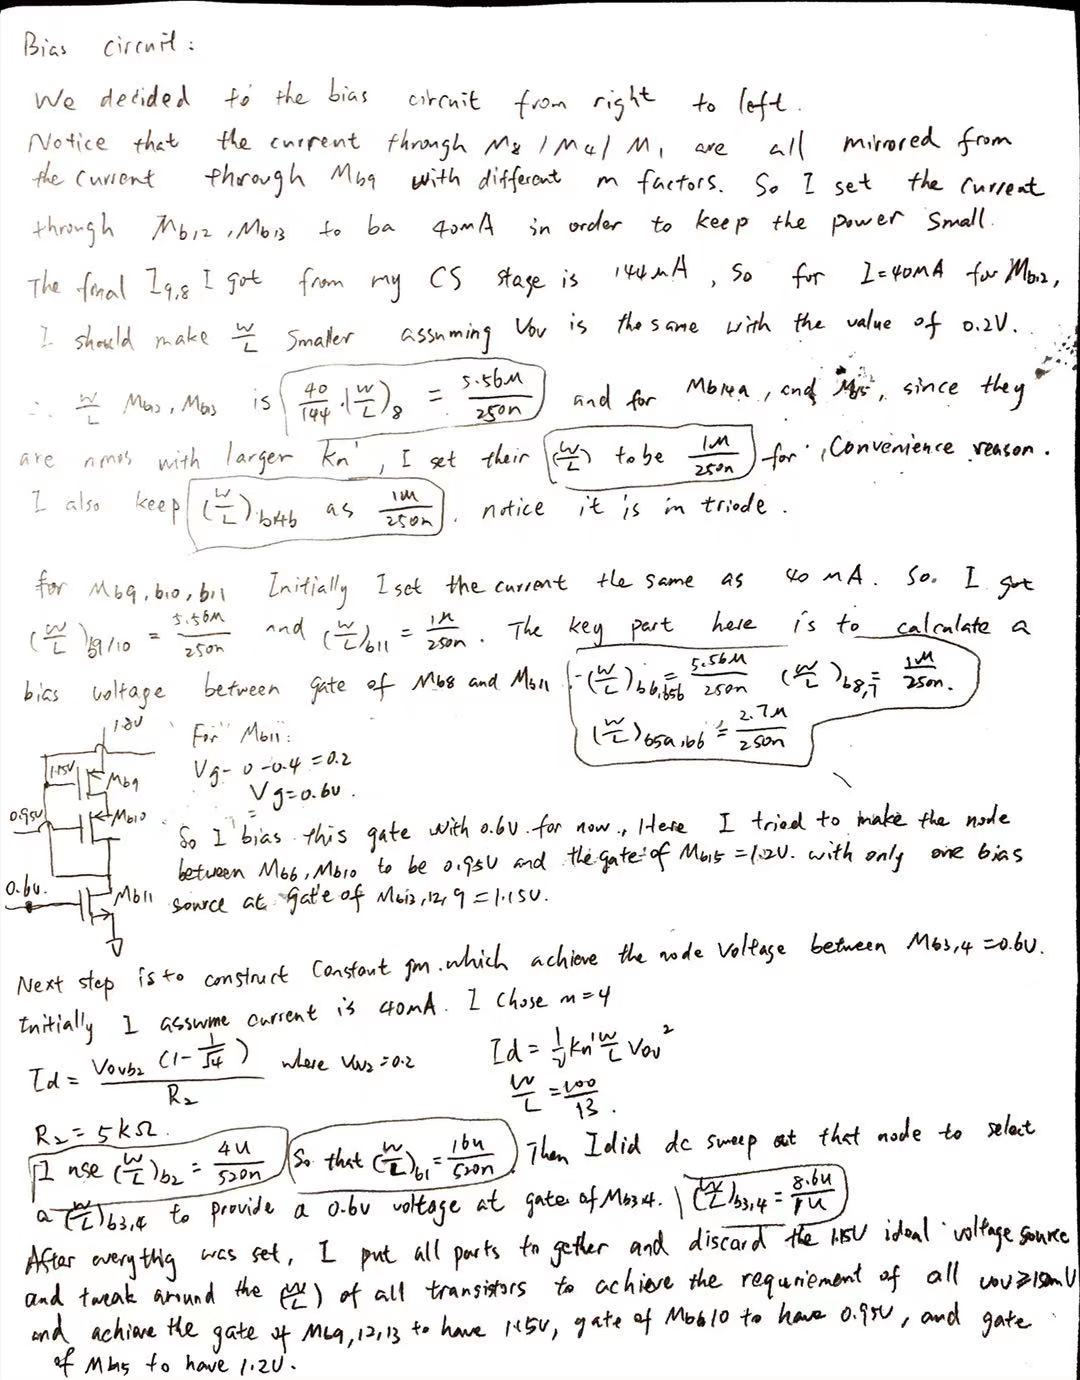 Bias circuit:
We decided to the bias circuit from right to left.
Notice that the current through M8 / M4 / M1 are all mirrored from
the current through Mb9 with different m factors. So I set the current
through Mb12, Mb13 to ba 40mA in order to keep the power small.
The final I9,8 I got from my CS stage is 144mA, So for I=40mA for Mb12,
I should make W/L smaller assuming Vov is the same with the value of 0.2V.
∴ W/L Mb12, Mb13 is 40/144 · (W/L)8 = 5.56M/250n and for Mb14a, and M15, since they
are nmos with larger kn', I set their (W/L) to be 1M/250n for convenience reason.
I also keep (W/L)b14b as 1M/250n. notice it is in triode.
for Mb9, b10, b11 Initially I set the current the same as 40mA. So. I got
(W/L)b9/10 = 5.56M/250n and (W/L)b11 = 1M/250n. The key part here is to calculate a
bias voltage between gate of Mb8 and Mb11 (W/L)b6,b5b = 5.56M/250n (W/L)b8,7 = 1M/250n.
(W/L)b5a,bb = 2.7M/250n
1.8V
For Mb11:
1.15V Mb9
Vg - 0 - 0.4 = 0.2
Vg = 0.6V.
0.95V Mb10
So I bias this gate with 0.6V for now., Here I tried to make the node
between Mb6, Mb10 to be 0.95V and the gate of Mb15 = 1.2V. with only one bias
0.6V. Mb11
source at gate of Mb13,12,9 = 1.15V.
Next step is to construct Constant gm. which achieve the node voltage between Mb3,4 = 0.6V.
Initially I assume current is 40mA. I chose m=4
Id = Vovb2 (1 - 1/√4) / R2 where Vov2 = 0.2 Id = 1/2 kn' W/L Vov²
W/L = 100/13.
R2 = 5kΩ.
I use (W/L)b2 = 4u/520n So that (W/L)b1 = 16u/520n. Then I did dc sweep at that node to select
a (W/L)b3,4 to provide a 0.6V voltage at gate of Mb3,4. (W/L)b3,4 = 8.6u/1u
After everythig was set, I put all parts to gether and discard the 1.15V ideal voltage source
and tweak around the (W/L) of all transistors to achieve the requriement of all vov≥150mV
and achieve the gate of Mb9,12,13 to have 1.15V, gate of Mb6,10 to have 0.95V, and gate
of Mb15 to have 1.2V.